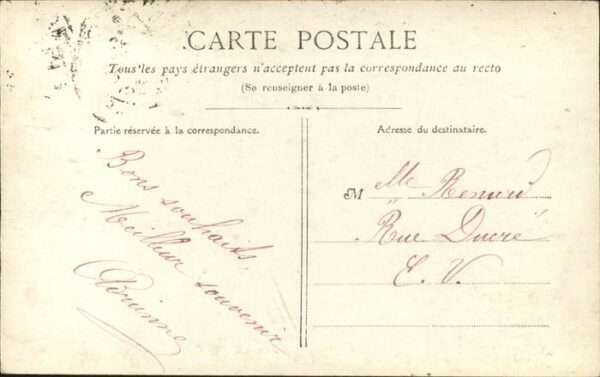 CARTE POSTALE
Tous les pays étrangers n'acceptent pas la correspondance au recto
(Se renseigner à la poste)
Partie réservée à la correspondance.
Bons souhaits,
Meilleur souvenir
Adresse du destinataire.
M
Mlle Renard
Rue Ducré
E. V.